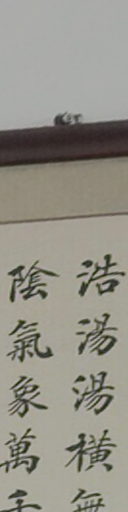 浩湯湯橫無
陰氣象萬千